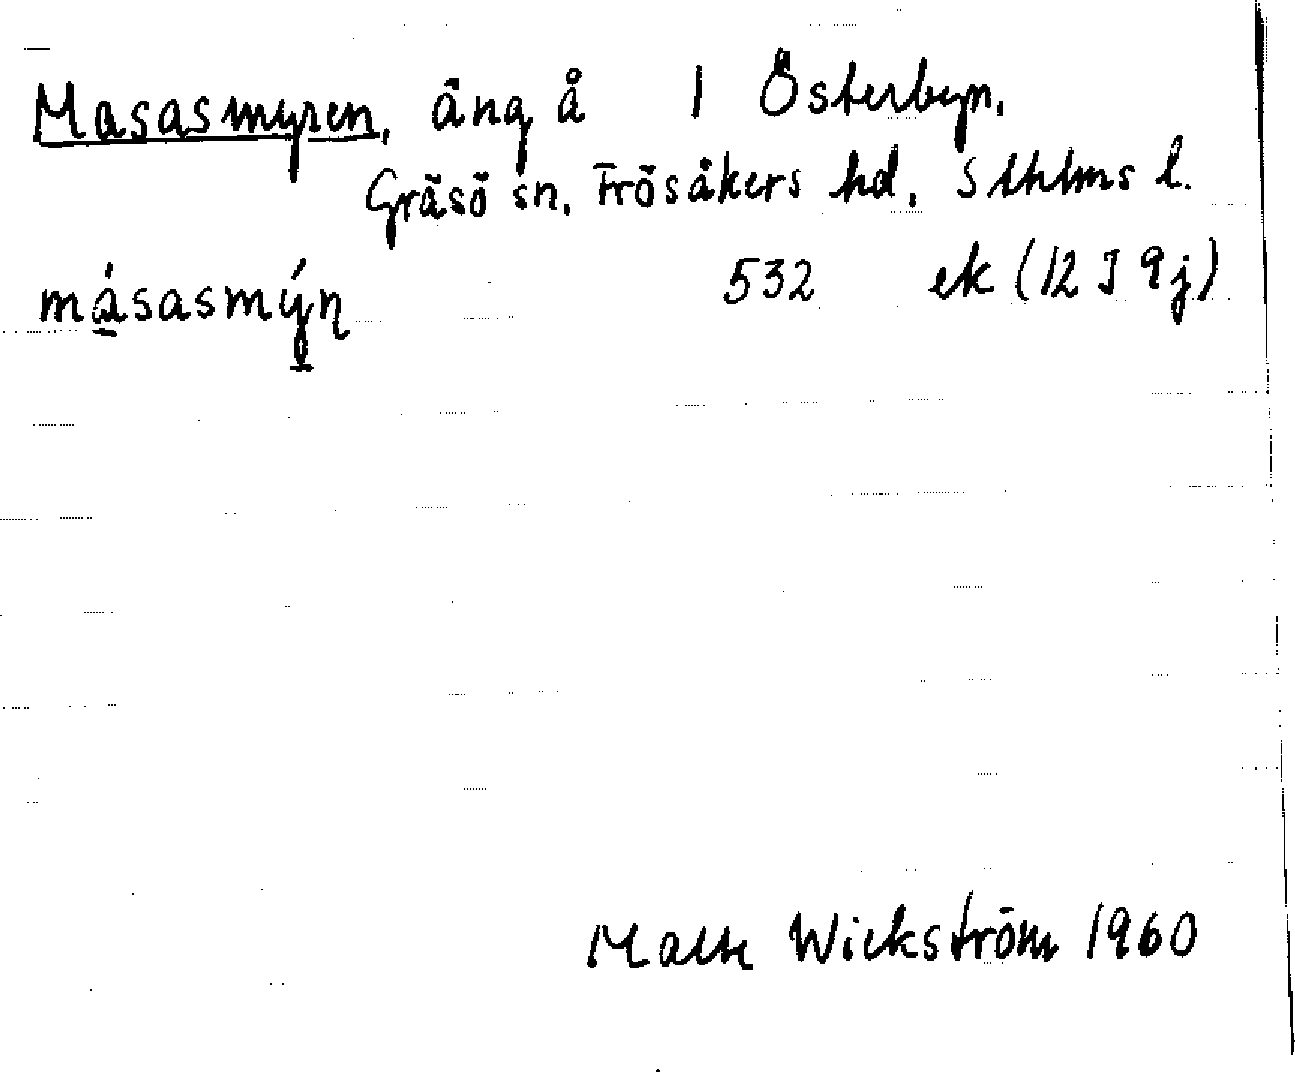 Masasmyren, äng å 1 Österbyn,
Gräsö sn, Frösåkers hd, Sthlms l.
mása̠smýṉ 532 ek (12 I 9j)
Malte Wickström 1960